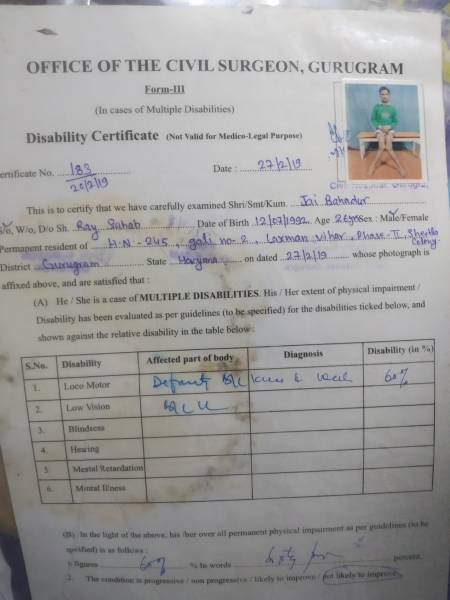 OFFICE OF THE CIVIL SURGEON, GURUGRAM
Form-III
(In cases of Multiple Disabilities)
Disability Certificate (Not Valid for Medico-Legal Purpose)
ertificate No. 183 Date : 27/2/19
20/2/19
This is to certify that we have carefully examined Shri/Smt/Kum. Jai Bahadur
S/o, W/o, D/o Sh. Ray Sahab Date of Birth 12/07/1992 Age 26yrs Sex : Male/Female
Permanent resident of H.N-245, gali no-2, Laxman Vihar, Phase-II, Sheetla Colony,
District Gurugram State Haryana on dated 27/2/19 whose photograph is
affixed above, and are satisfied that :
(A) He / She is a case of MULTIPLE DISABILITIES. His / Her extent of physical impairment /
Disability has been evaluated as per guidelines (to be specified) for the disabilities ticked below, and
shown against the relative disability in the table below :
S.No. Disability Affected part of body Diagnosis Disability (in %)
1. Loco Motor 60%
2. Low Vision
3. Blindness
4. Hearing
5. Mental Retardation
6. Mintal Illness
(B) In the light of the above, his /her over all permanent physical impairment as per guidelines (to be
specified) is as follows :
figures 60% % In words sixty percent.
2. The condition is progressive / non progressive / likely to improve / not likely to improve